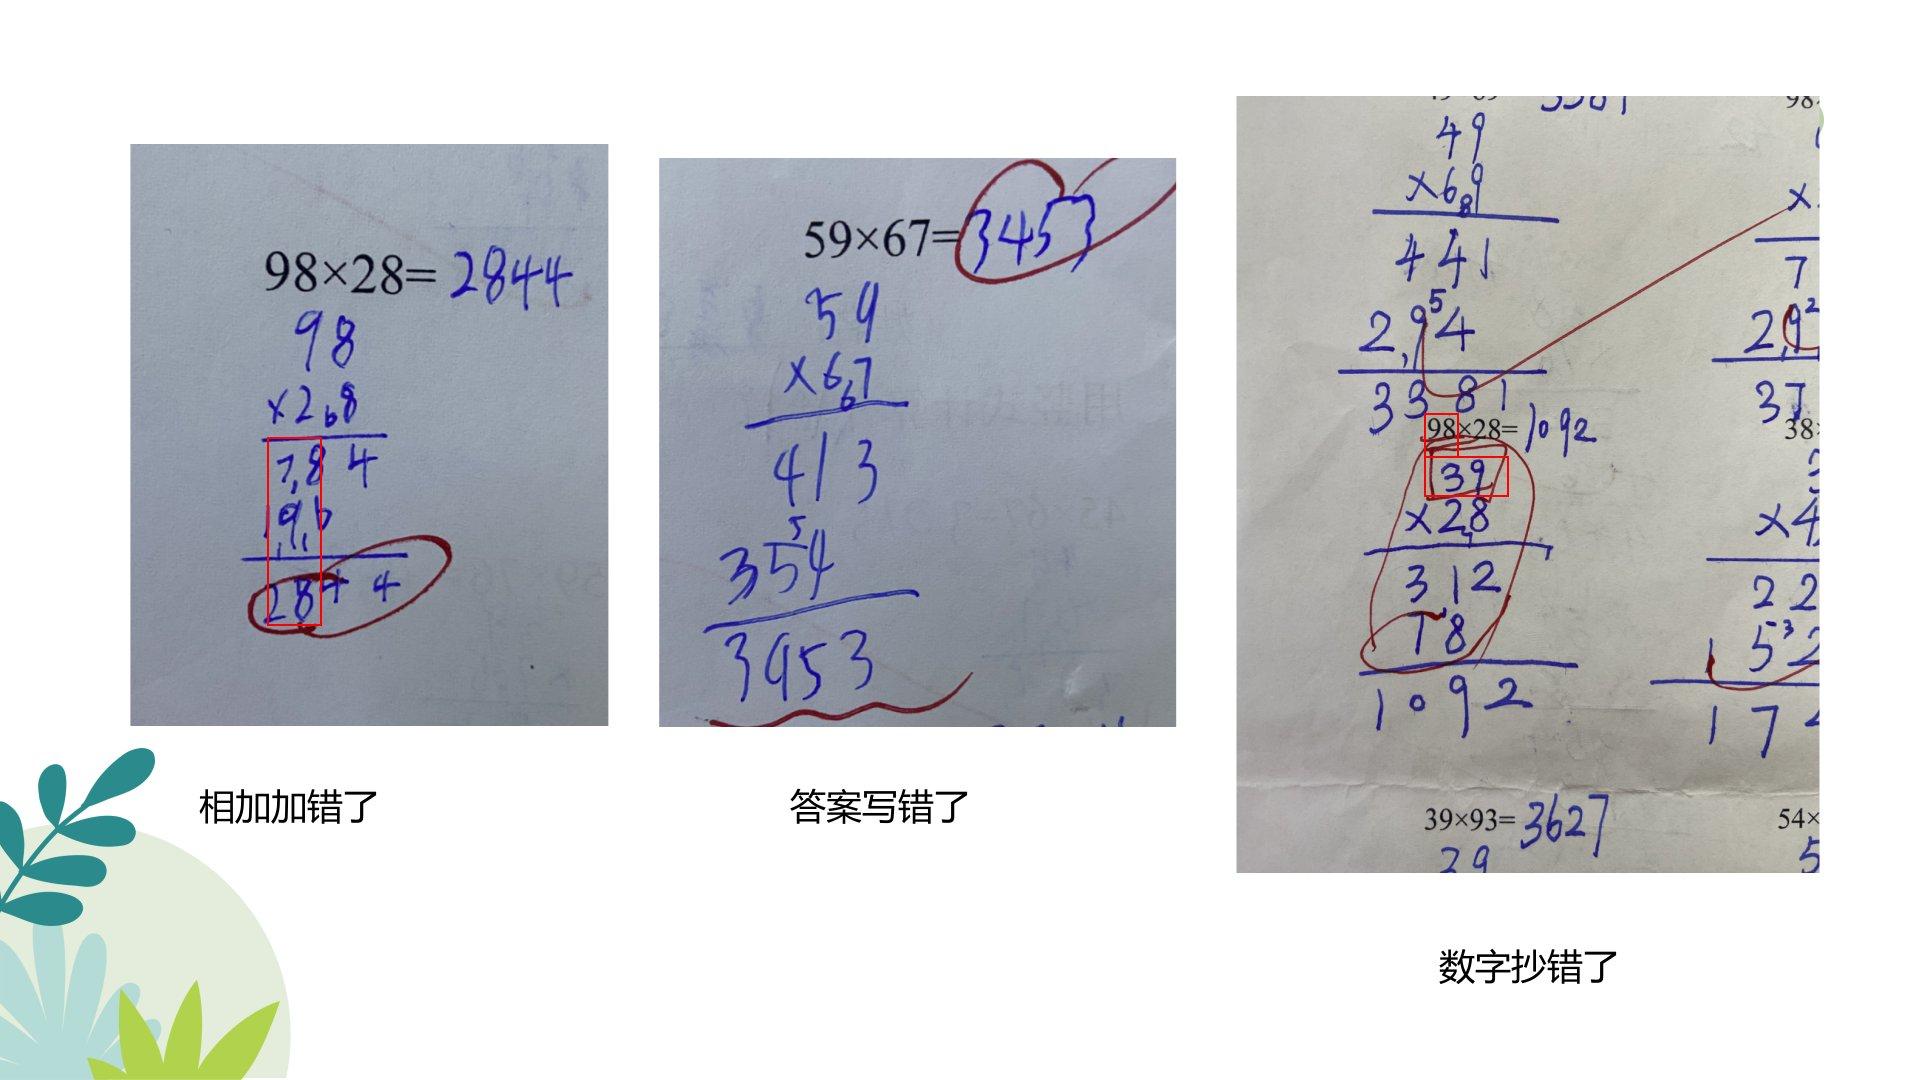 98×28= 2844
98
×2₆8
784
196
2844
相加加错了
59×67= 3453
59
×6₆7
413
35⁵4
3953
答案写错了
49
×6₈9
441
29⁵4
3381
98×28= 1092
39
×28
312
78
1092
39×93= 3627
39
98
×
7
2,9²
37
38×
×4
22
15³2
17
54×
5
数字抄错了